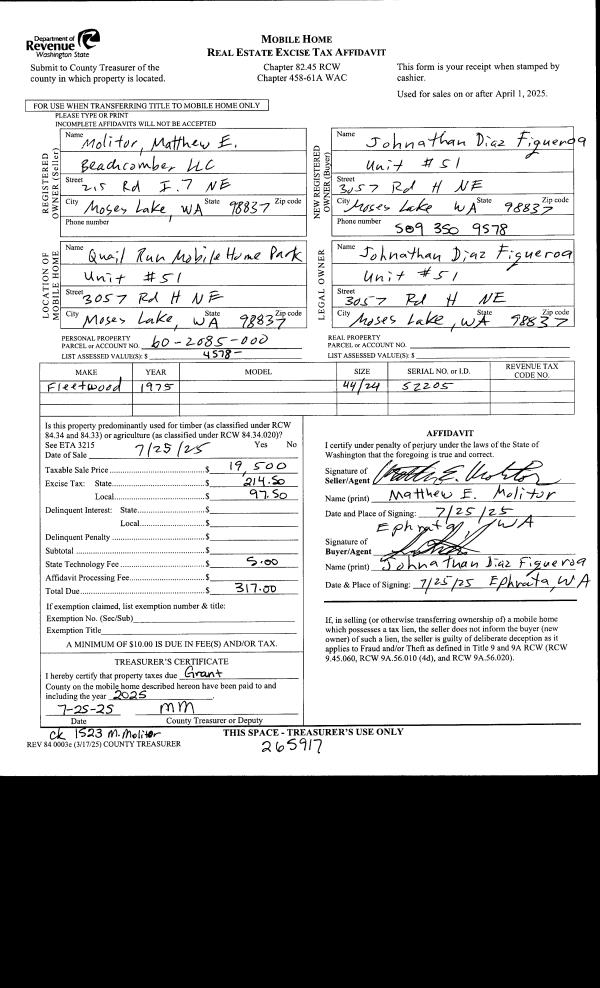 Department of
Revenue
Washington State
MOBILE HOME
REAL ESTATE EXCISE TAX AFFIDAVIT
Submit to County Treasurer of the
county in which property is located.
Chapter 82.45 RCW
Chapter 458-61A WAC
This form is your receipt when stamped by
cashier.
Used for sales on or after April 1, 2025.
FOR USE WHEN TRANSFERRING TITLE TO MOBILE HOME ONLY
PLEASE TYPE OR PRINT
INCOMPLETE AFFIDAVITS WILL NOT BE ACCEPTED
REGISTERED
OWNER (Seller)
Name Molitor, Matthew E.
Beachcomber LLC
Street 215 Rd I.7 NE
City Moses Lake, WA State 98837 Zip code
Phone number
NEW REGISTERED
OWNER (Buyer)
Name Johnathan Diaz Figueroa
Unit #51
Street 3057 Rd H NE
City Moses Lake WA State 98837 Zip code
Phone number 509 350 9578
LOCATION OF
MOBILE HOME
Name Quail Run Mobile Home Park
Unit #51
Street 3057 Rd H NE
City Moses Lake, WA State 98837 Zip code
LEGAL OWNER
Name Johnathan Diaz Figueroa
Unit #51
Street 3057 Rd H NE
City Moses Lake, WA State 98837 Zip code
PERSONAL PROPERTY
PARCEL or ACCOUNT NO. 60-2085-000
LIST ASSESSED VALUE(S): $ 4578-
REAL PROPERTY
PARCEL or ACCOUNT NO.
LIST ASSESSED VALUE(S): $
MAKE YEAR MODEL SIZE SERIAL NO. or I.D. REVENUE TAX CODE NO.
Fleetwood 1975 44/24 52205
Is this property predominantly used for timber (as classified under RCW
84.34 and 84.33) or agriculture (as classified under RCW 84.34.020)?
See ETA 3215 Yes No
Date of Sale 7/25/25
Taxable Sale Price $ 19,500
Excise Tax: State $ 214.50
Local $ 97.50
Delinquent Interest: State $
Local $
Delinquent Penalty $
Subtotal $
State Technology Fee $ 5.00
Affidavit Processing Fee $
Total Due $ 317.00
If exemption claimed, list exemption number & title:
Exemption No. (Sec/Sub)
Exemption Title
A MINIMUM OF $10.00 IS DUE IN FEE(S) AND/OR TAX.
TREASURER'S CERTIFICATE
I hereby certify that property taxes due Grant
County on the mobile home described hereon have been paid to and
including the year 2025.
7-25-25 mm
Date County Treasurer or Deputy
AFFIDAVIT
I certify under penalty of perjury under the laws of the State of
Washington that the foregoing is true and correct.
Signature of
Seller/Agent
Name (print) Matthew E. Molitor
Date and Place of Signing: 7/25/25
Ephrata, WA
Signature of
Buyer/Agent
Name (print) Johnathan Diaz Figueroa
Date & Place of Signing: 7/25/25 Ephrata, WA
If, in selling (or otherwise transferring ownership of) a mobile home
which possesses a tax lien, the seller does not inform the buyer (new
owner) of such a lien, the seller is guilty of deliberate deception as it
applies to Fraud and/or Theft as defined in Title 9 and 9A RCW (RCW
9.45.060, RCW 9A.56.010 (4d), and RCW 9A.56.020).
ck 1523 M. Molitor
THIS SPACE - TREASURER'S USE ONLY
REV 84 0003e (3/17/25) COUNTY TREASURER
265917